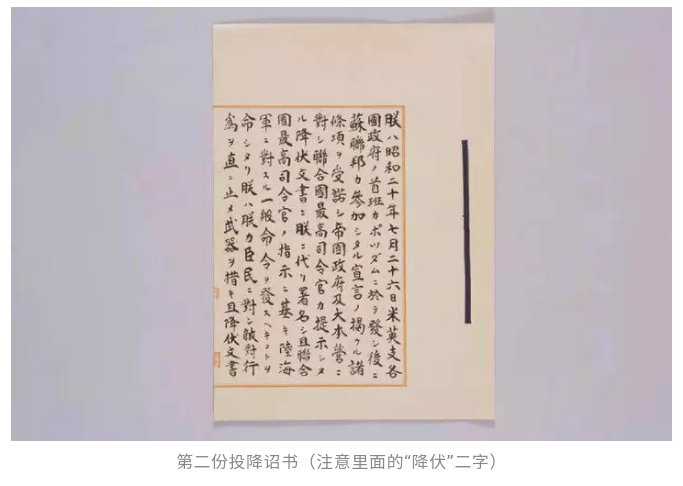 朕ハ昭和二十年七月二十六日米英支各
國政府ノ首班カポツダムニ於テ發シ後ニ
蘇聯邦カ參加シタル宣言ノ掲クル諸
條項ヲ受諾シ帝國政府及大本營ニ
對シ聯合國最高司令官カ提示シタ
ル降伏文書ニ朕ニ代リ署名シ且聯合
國最高司令官ノ指示ニ基キ陸海
軍ニ對スル一般命令ヲ發スヘキコトヲ
命シタリ朕ハ朕カ臣民ニ對シ敵對行
為ヲ直ニ止メ武器ヲ措キ且降伏文書
第二份投降诏书（注意里面的“降伏”二字）